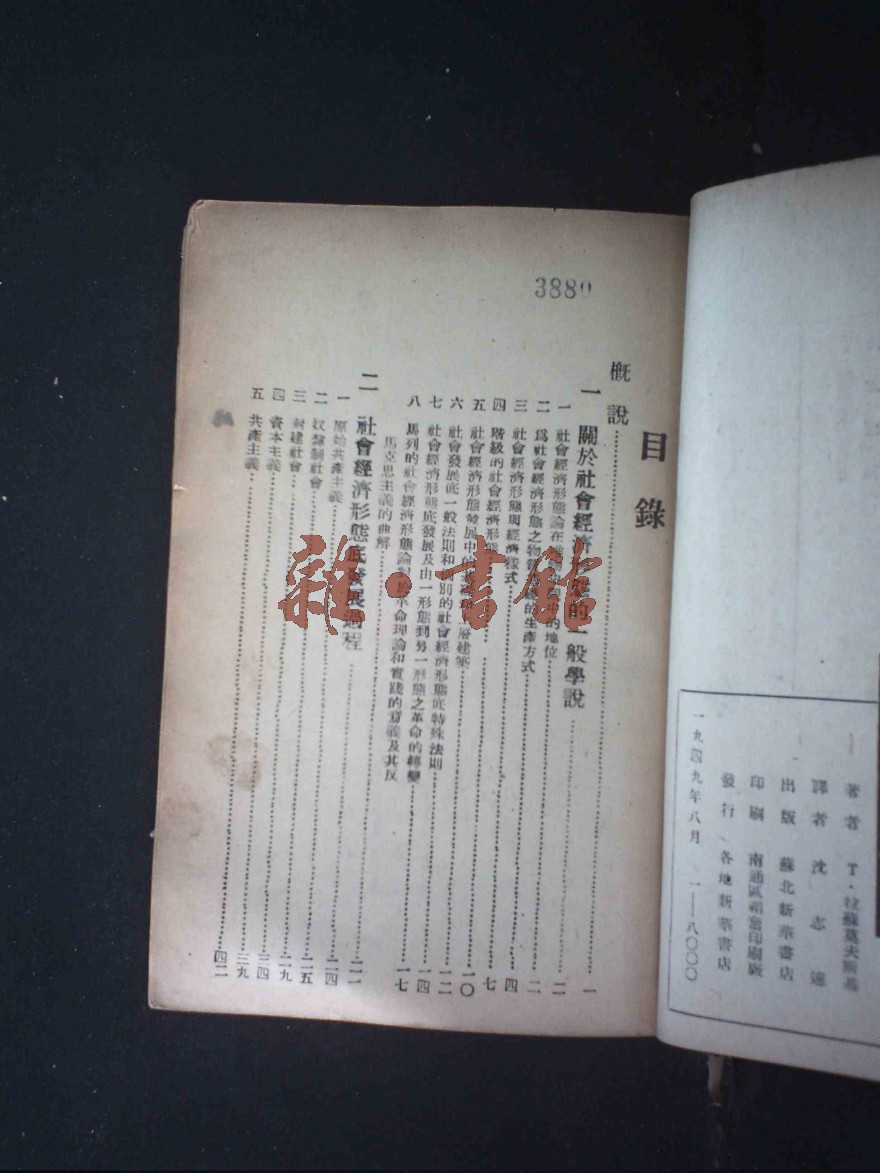 著者 T·拉蘇莫夫斯基
譯者 沈志遠
出版 蘇北新華書店
印刷 南通區韜奮印刷廠
發行 各地新華書店
一九四九年八月 一——八〇〇〇
3880
目錄
概說 一
一 關於社會經濟態的一般學說 二
一 社會經濟形態論在中的地位 二
二 為社會經濟形態之物質的生產方式 四
三 社會經濟形態與經濟樣式 七
四 階級的社會經濟形態 一〇
五 社會經濟形態發展中的層建築 一二
六 社會發展底一般法則和個別的社會經濟形態底特殊法則 一四
七 社會經濟形態底發展及由一形態到另一形態之革命的轉變 一七
八 馬列的社會經濟形態論對於革命理論和實踐的意義及其反
馬克思主義的曲解 二一
二 社會經濟形態底發展過程 二四
一 原始共產主義 二五
二 奴隸制社會 二九
三 封建社會 三四
四 資本主義 三九
五 共產主義 四二
雜·書館